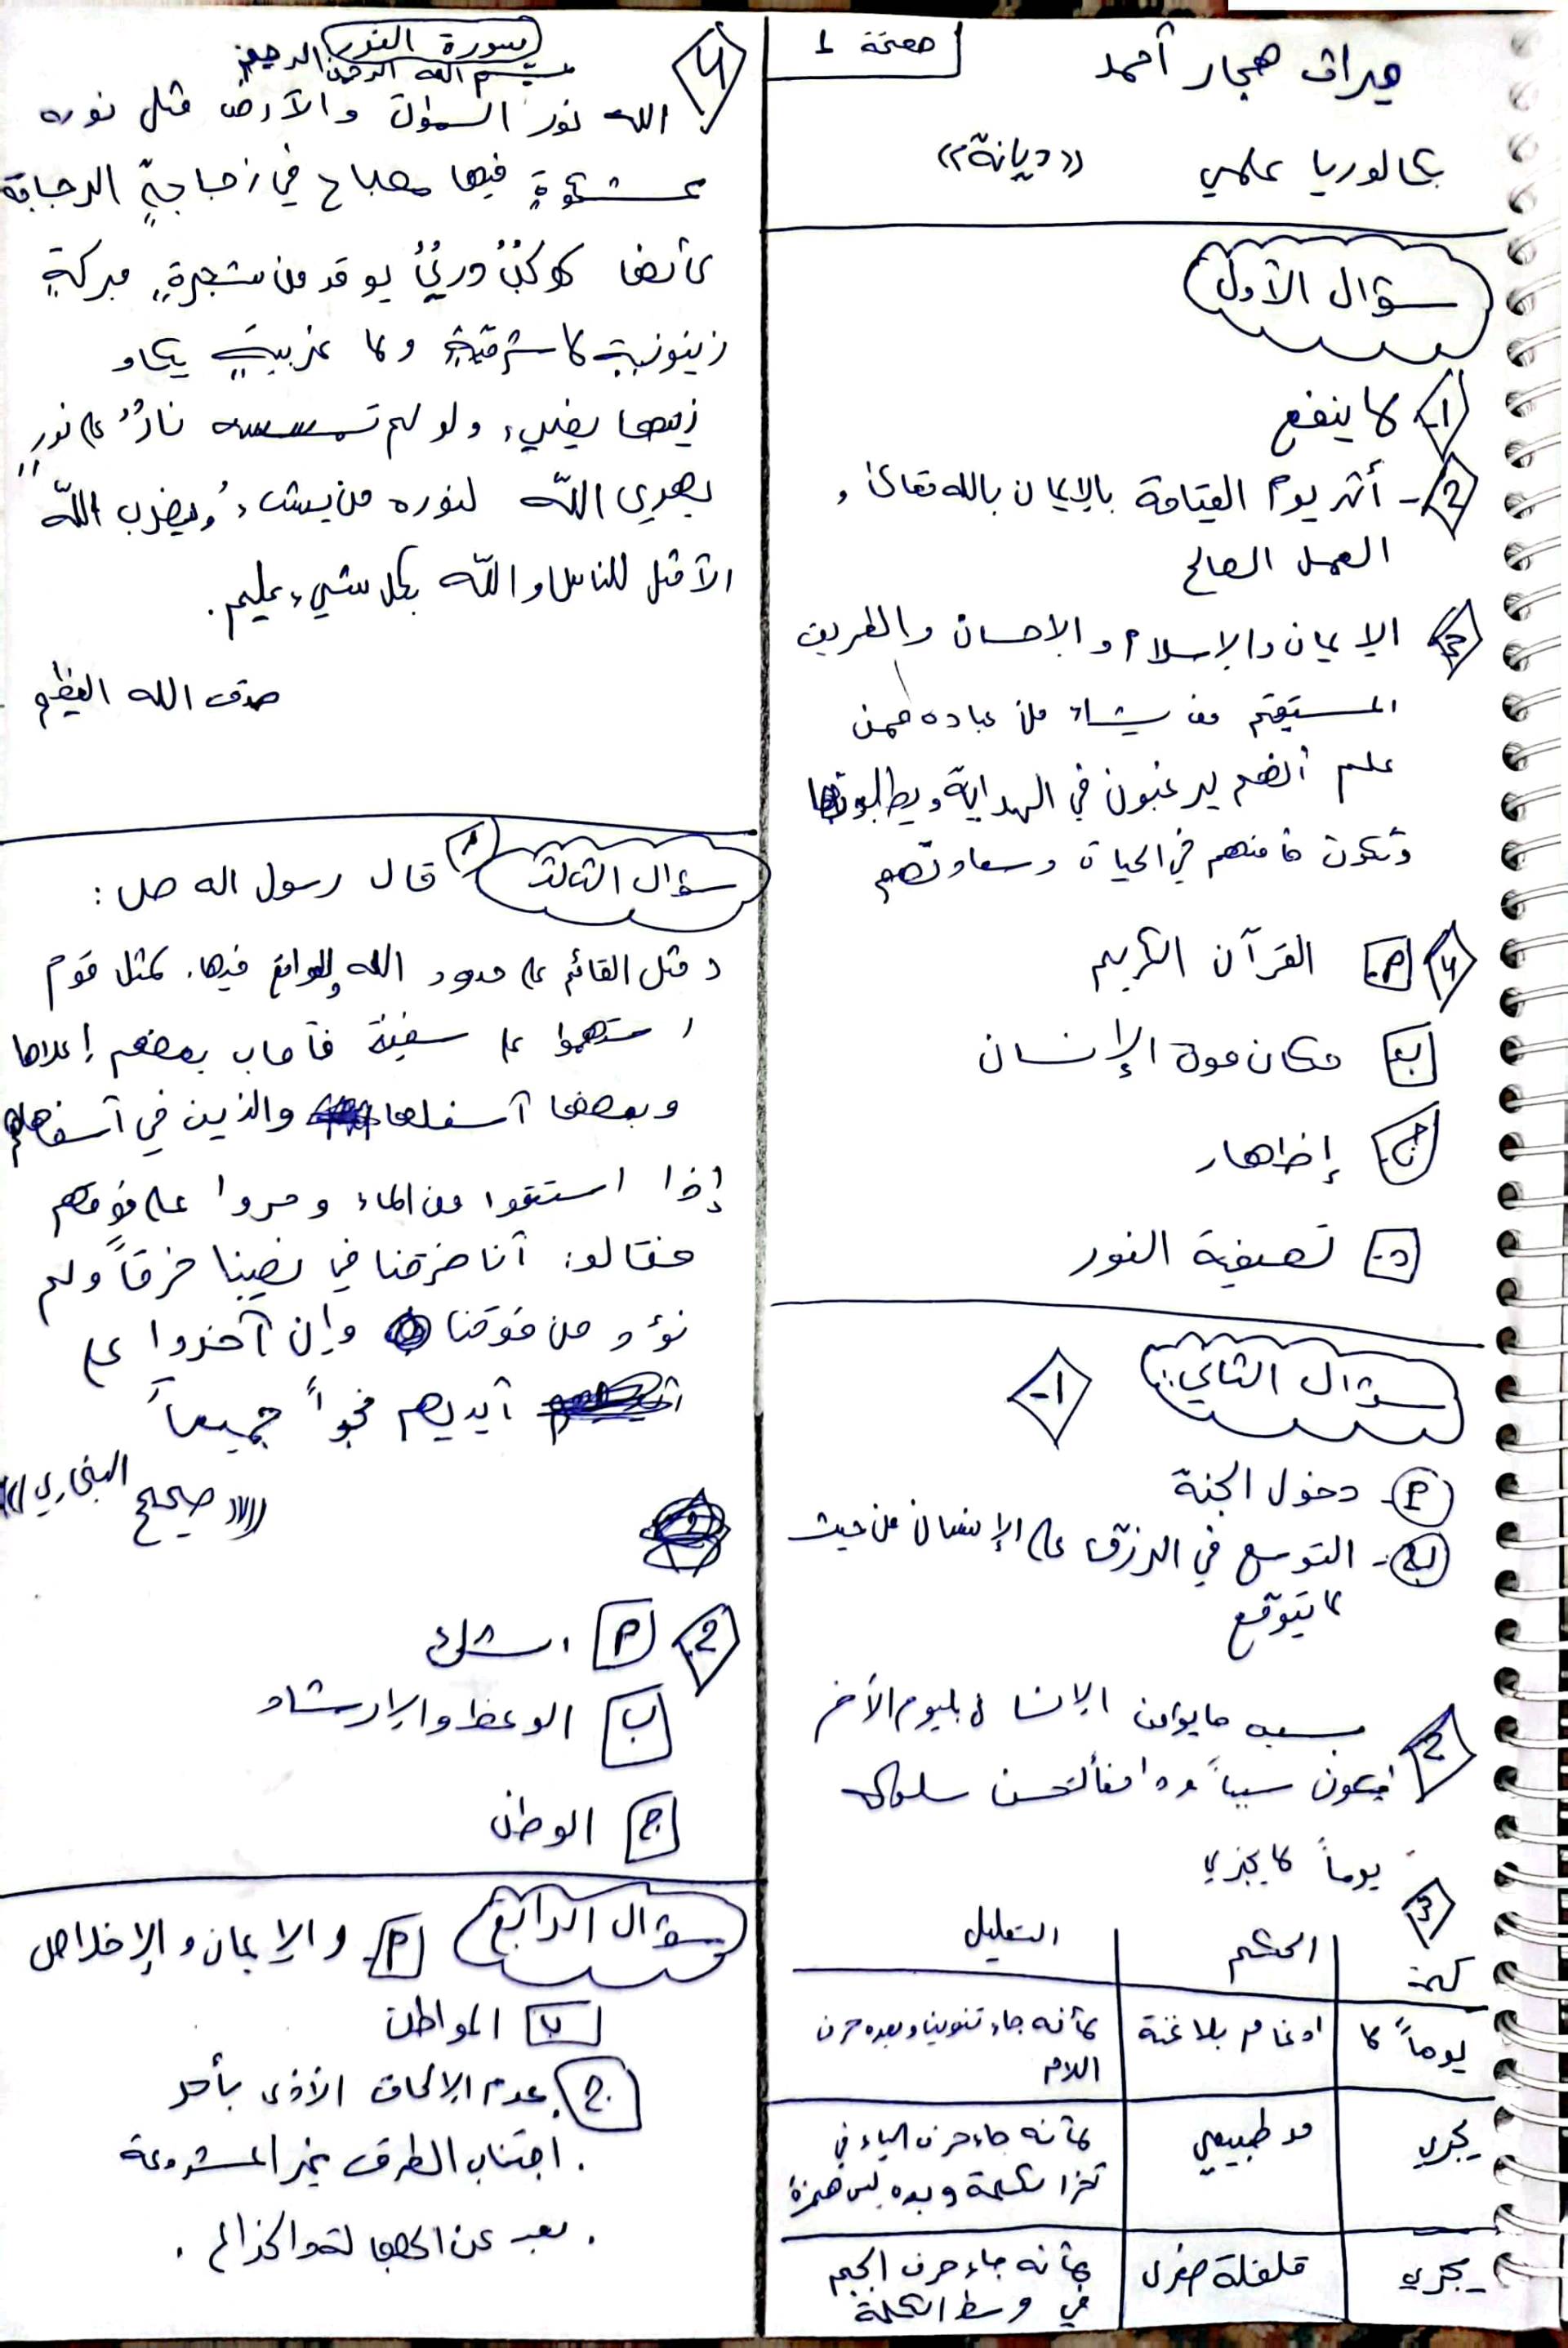 صفحة 1
ميراف هجار أحمد
بكالوريا علمي «ديانة»
سؤال الأول
1- لا ينفع
2- أثر يوم القيامة بالإيمان بالله تعالى و
العمل الصالح
3 الإيمان والإسلام والإحسان والطريق
المستقيم من يشاء من عباده ممن
علم أنهم يرغبون في الهداية ويطلبونها
وتكون منهم في الحياة وسعادتهم
4 P- القرآن الكريم
ب مكان موت الإنسان
ج- إظهار
د- تصفية النور
سؤال الثاني:
1-
P- دخول الجنة
ب- التوسع في الرزق على الإنسان من حيث
لا يتوقع
2 سبب ما يوامن الإنسان بليوم الأخر
فيكون سبباً ودافعاً لتحسن سلوكه
3 يوماً لا يجزي
كلمة الحكم التعليل
يوماً لا ادغام بلا غنة لأنه جاء تنوين وبعده حرف
اللام
يجزي مد طبيعي لأنه جاء حرف الياء في
آخر الكلمة وبعده ليس همزة
يجزي قلقلة صغرى لأنه جاء حرف الجيم
في وسط الكلمة
4 سورة النور
بسم الله الرحمن الرحيم
الله نور السموات والأرض مثل نوره
كمشكوةٍ فيها مصباح في زجاجةٍ الزجاجة
كأنها كوكبٌ دريٌ يوقد من شجرةٍ مبركةٍ
زيتونةٍ لا شرقيةٍ ولا غربيةٍ يكاد
زيتها يضيء ولو لم تمسسه نارٌ على نورٍ
يهدي اللّه لنوره من يشاء ويضرب اللّه
الأمثل للناس واللّه بكل شيء عليم.
صدق الله العظيم
سؤال الثالث 1 قال رسول اله ص:
د مثل القائم على حدود الله والواقع فيها. كمثل قوم
استهموا على سفينة فأصاب بعضهم إعلاها
وبعضها أسفلها والذين في أسفلها
إذا استقوا من الماء ومروا على فوقهم
فقالو: أنا خرقنا في نصيبنا خرقاً ولم
نؤذ من فوقنا وإن آخذوا على
أيديهم نجواً جميعاً
((صحيح البخاري))
2 P الشرك
ب الوعظ والإرشاد
ج الوطن
سؤال الرابع P- و الإيمان والإخلاص
ب المواطن
ج. عدم الإلحاق الأذى بأحد
. اجتناب الطرق غير المشروعة